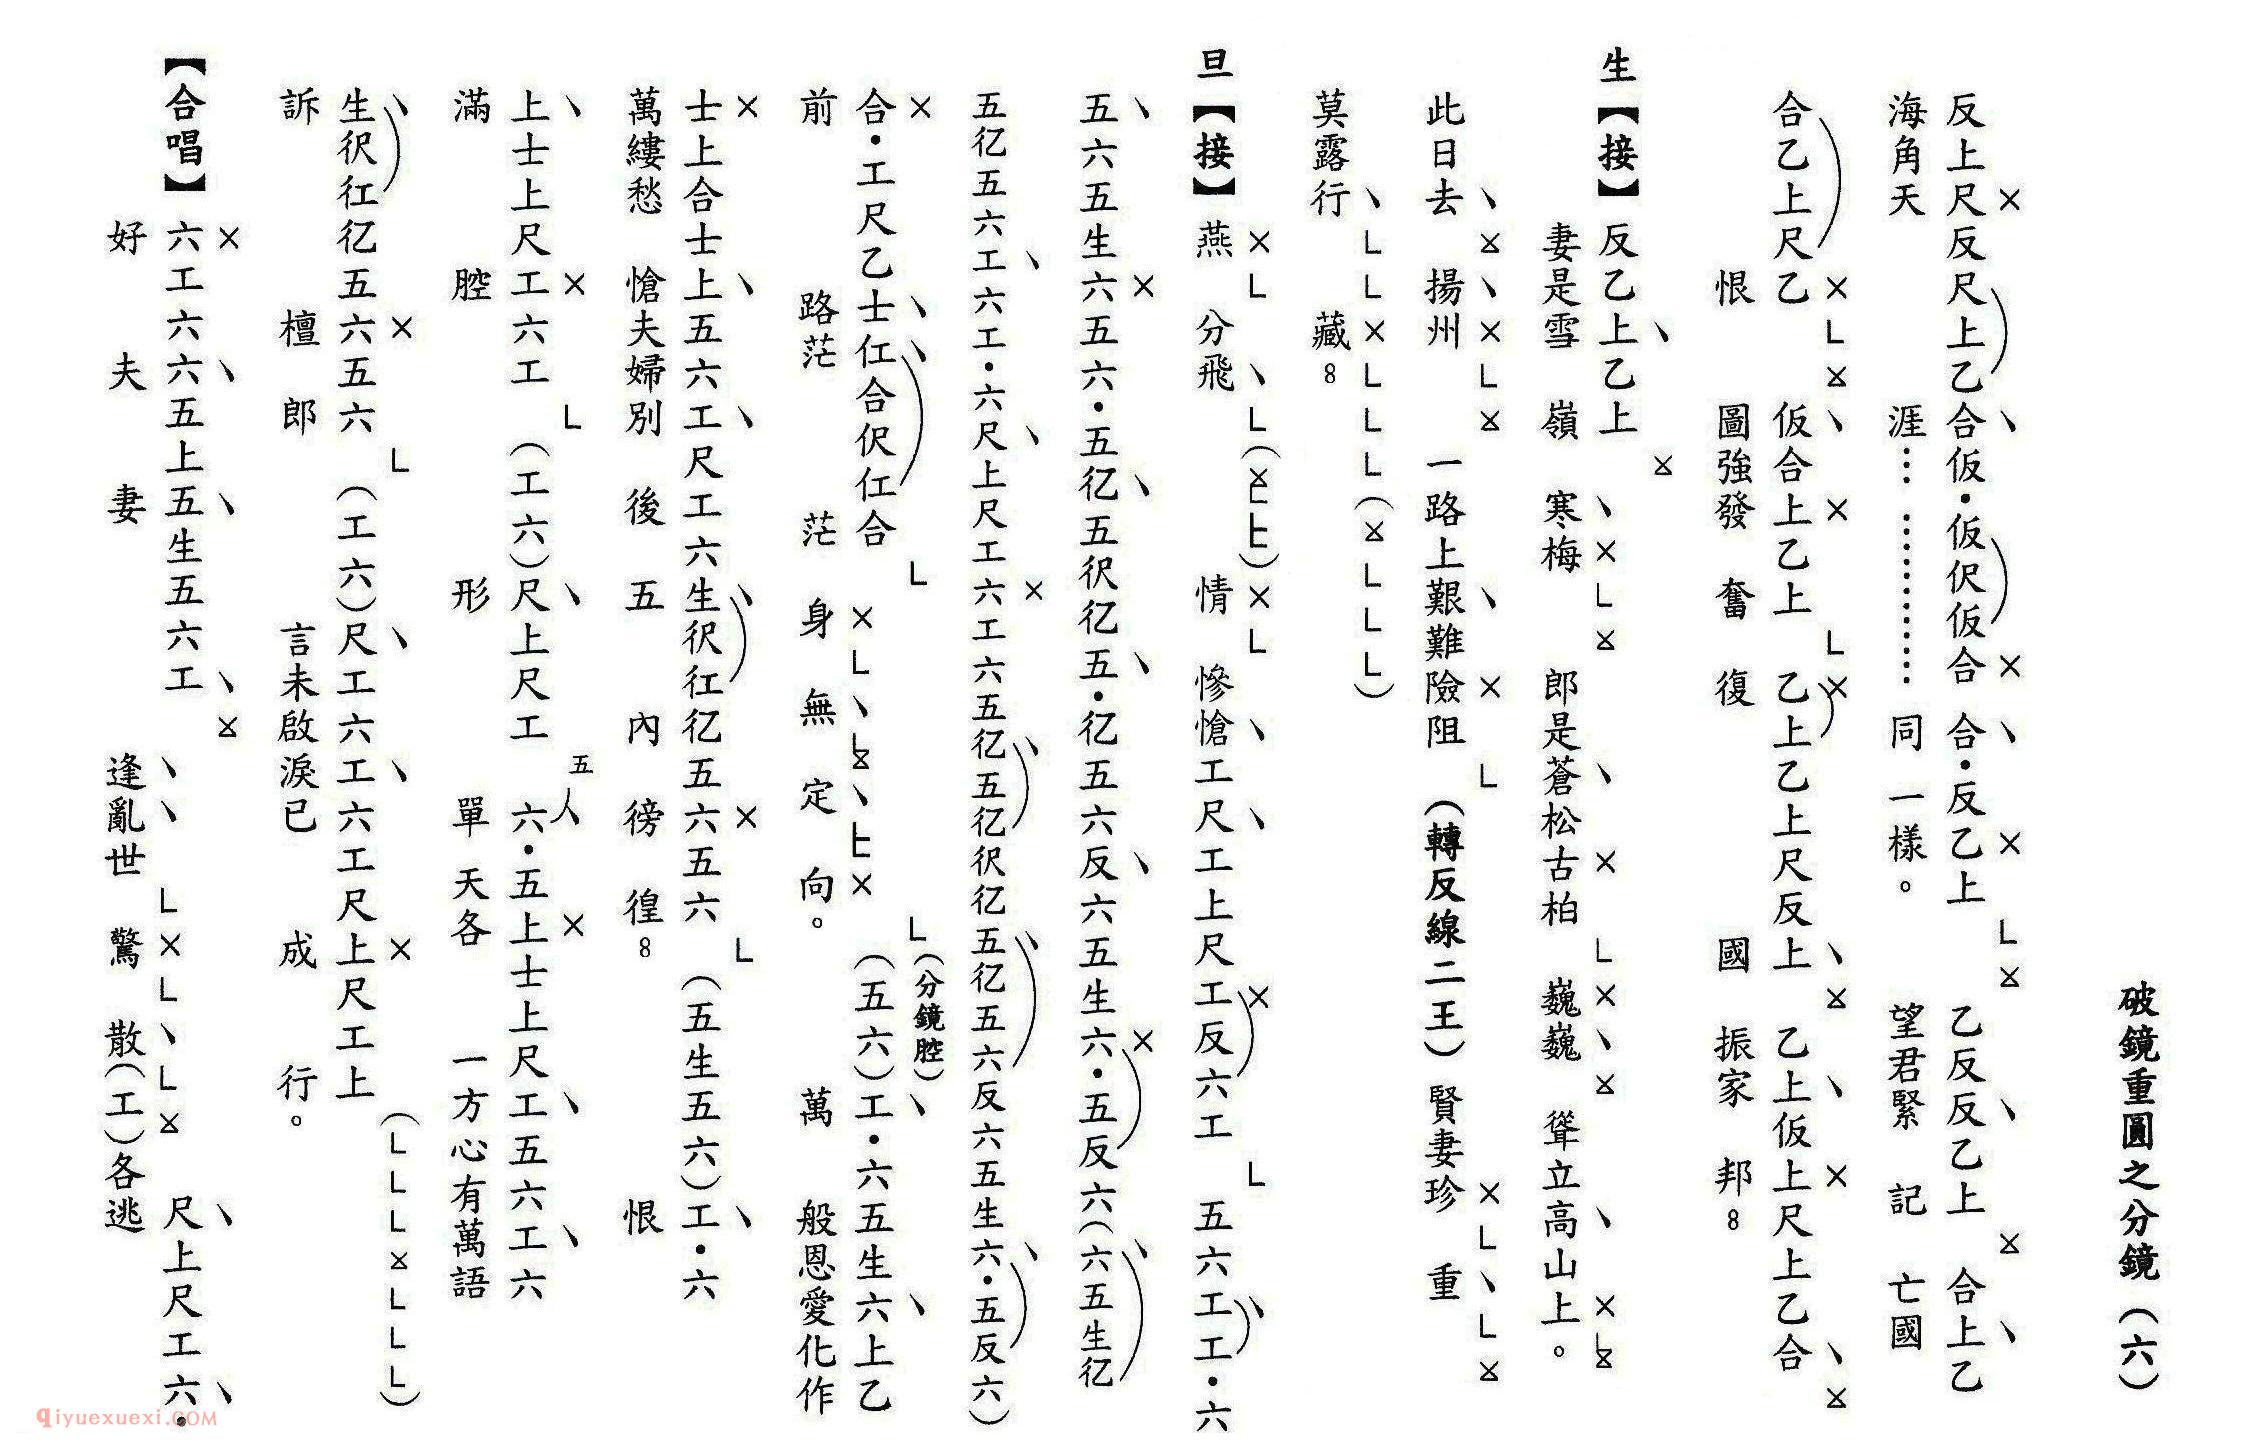 破鏡重圓之分鏡（六）
反上尺反尺上乙合仮•仮伬仮合 合•反乙上 乙反反乙上 合上乙
海角天 涯⋯ ⋯⋯⋯ 同一樣。 望君緊 記 亡國
合乙上尺乙 仮合上乙上 乙上乙上尺反上 乙上仮上尺上乙合
恨 圖強發 奮 復 國 振家 邦8
生【接】反乙上乙上
妻是雪 嶺 寒梅 郎是蒼松古柏 巍巍 聳立高山上。
此日去 揚州 一路上艱難險阻 （轉反線二王）賢妻珍 重
莫露行 藏8
旦【接】燕 分飛 情 慘愴工尺工上尺工反六工 五六工工•六
五六五生六五六•五亿五伬亿五•亿五六反六五生六•五反六（六五生亿
五亿五六工六工•六尺上尺工六工六五亿五亿伬亿五亿五六反六五生六•五反六）
合•工尺乙士仜合伬仜合 （五六）工•六五生六上乙
（分鏡腔）
前 路茫 茫 身 無 定 向。 萬 般恩愛化作
士上合士上五六工尺工六生伬仜亿五六五六 （五生五六）工•六
萬縷愁 愴夫婦別 後 五 內 徬 徨8 恨
上士上尺工六工 （工六）尺上尺工 六•五上士上尺工五六工六
五
滿 腔 形 單 天各 一方心有萬語
生伬仜亿五六五六 （工六）尺工六工六工尺上尺工上
訴 檀 郎 言未啟淚已 成 行。
【合唱】六工六六五上五生五六工 尺上尺工六•
好 夫 妻 逢亂世 驚 散（工）各逃
qiyuexuexi.COM